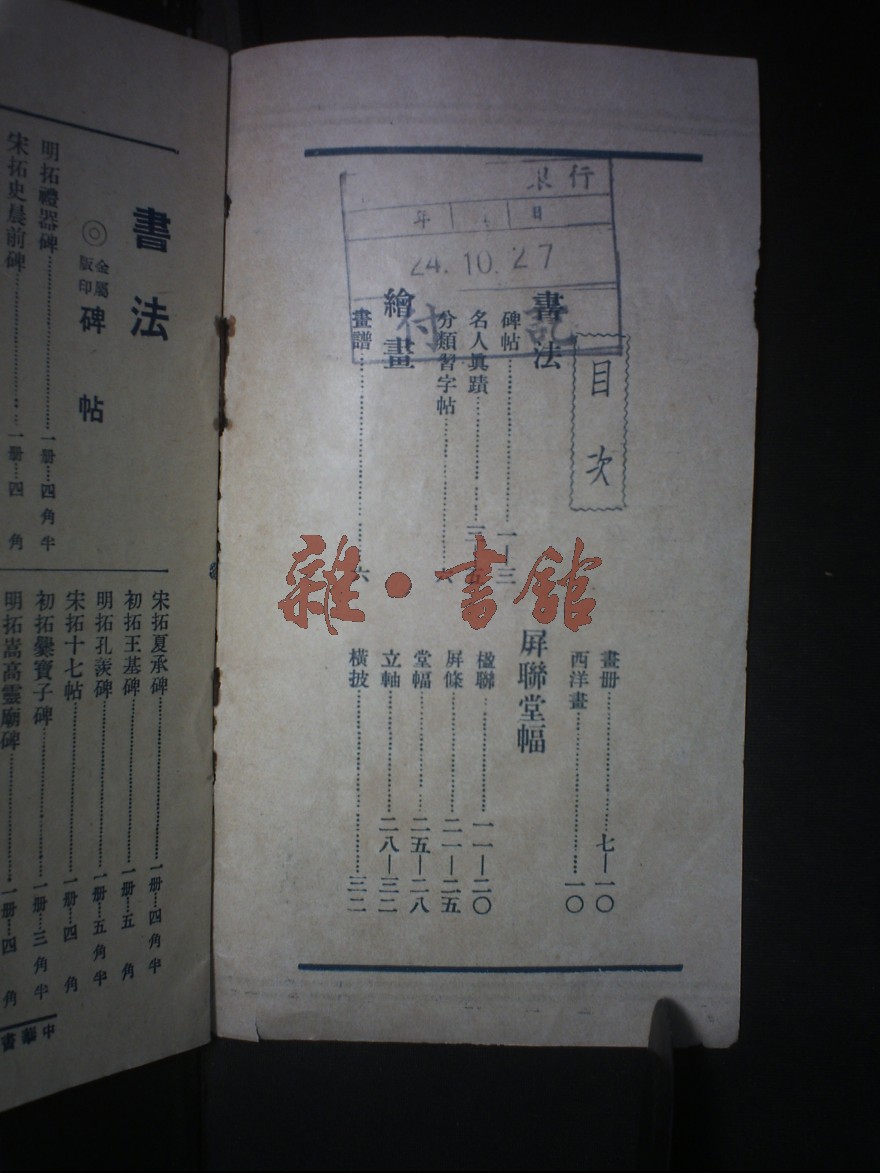 行
年 日
24.10.27
付
目次
書法
碑帖……一—三
名人眞蹟……三
分類習字帖
繪畫
畫譜……六
畫册……七—一〇
西洋畫……一〇
屛聯堂幅
楹聯……一一—二〇
屛條……二一—二五
堂幅……二五—二八
立軸……二八—三二
橫披……三二
雜·書館
書法
◎金屬版印碑帖
明拓禮器碑……一册……四角半
宋拓史晨前碑……一册……四角
宋拓夏承碑……一册……四角半
初拓王基碑……一册……五角
明拓孔羨碑……一册……五角半
宋拓十七帖……一册……四角
初拓爨寶子碑……一册……三角半
明拓嵩高靈廟碑……一册……四角
中華書